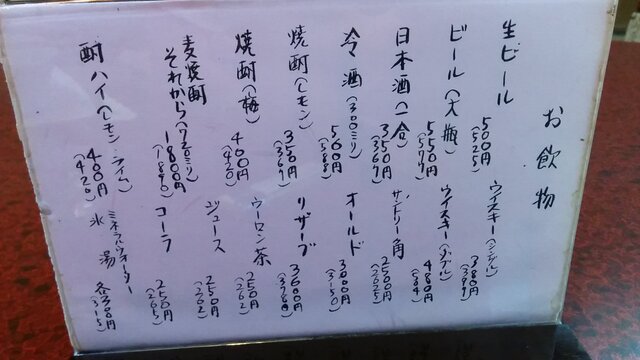 お飲物
生ビール 500円 (525)
ビール(大瓶) 550円 (577)
日本酒(一合) 350円 (367)
冷酒(300ミリ) 560円 (588)
焼酎(レモン) 350円 (367)
焼酎(梅) 400円 (420)
麦焼酎
それから(720ミリ) 1800円 (1890)
酎ハイ(レモン・ライム) 400円 (420)
ウイスキー(シングル) 380円 (399)
ウイスキー(ダブル) 480円 (504)
サントリー角 2500円 (2625)
オールド 3000円 (3150)
リザーブ 3600円 (3780)
ウーロン茶 250円 (262)
ジュース 250円 (262)
コーラ 250円 (265)
ミネラルウォーター
氷 湯 各300円 (315)